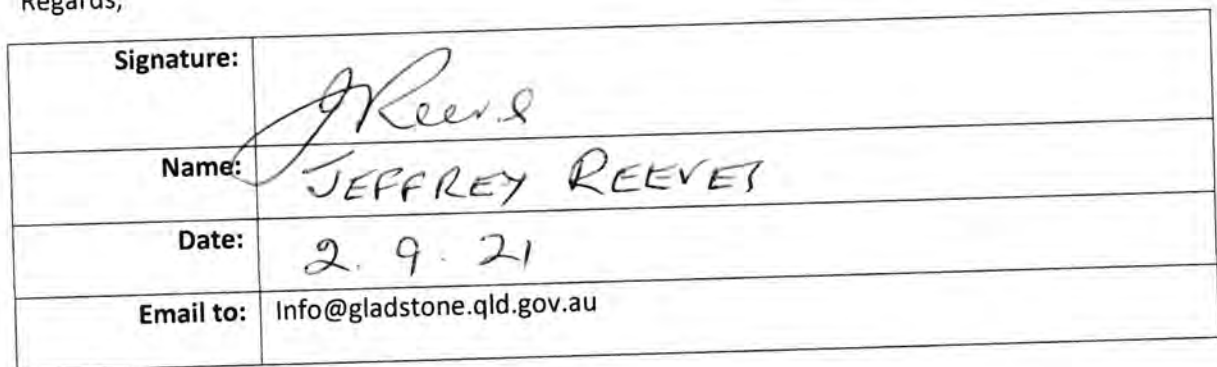 Regards,
Signature: JReeve
Name: JEFFREY REEVES
Date: 2. 9. 21
Email to: Info@gladstone.qld.gov.au